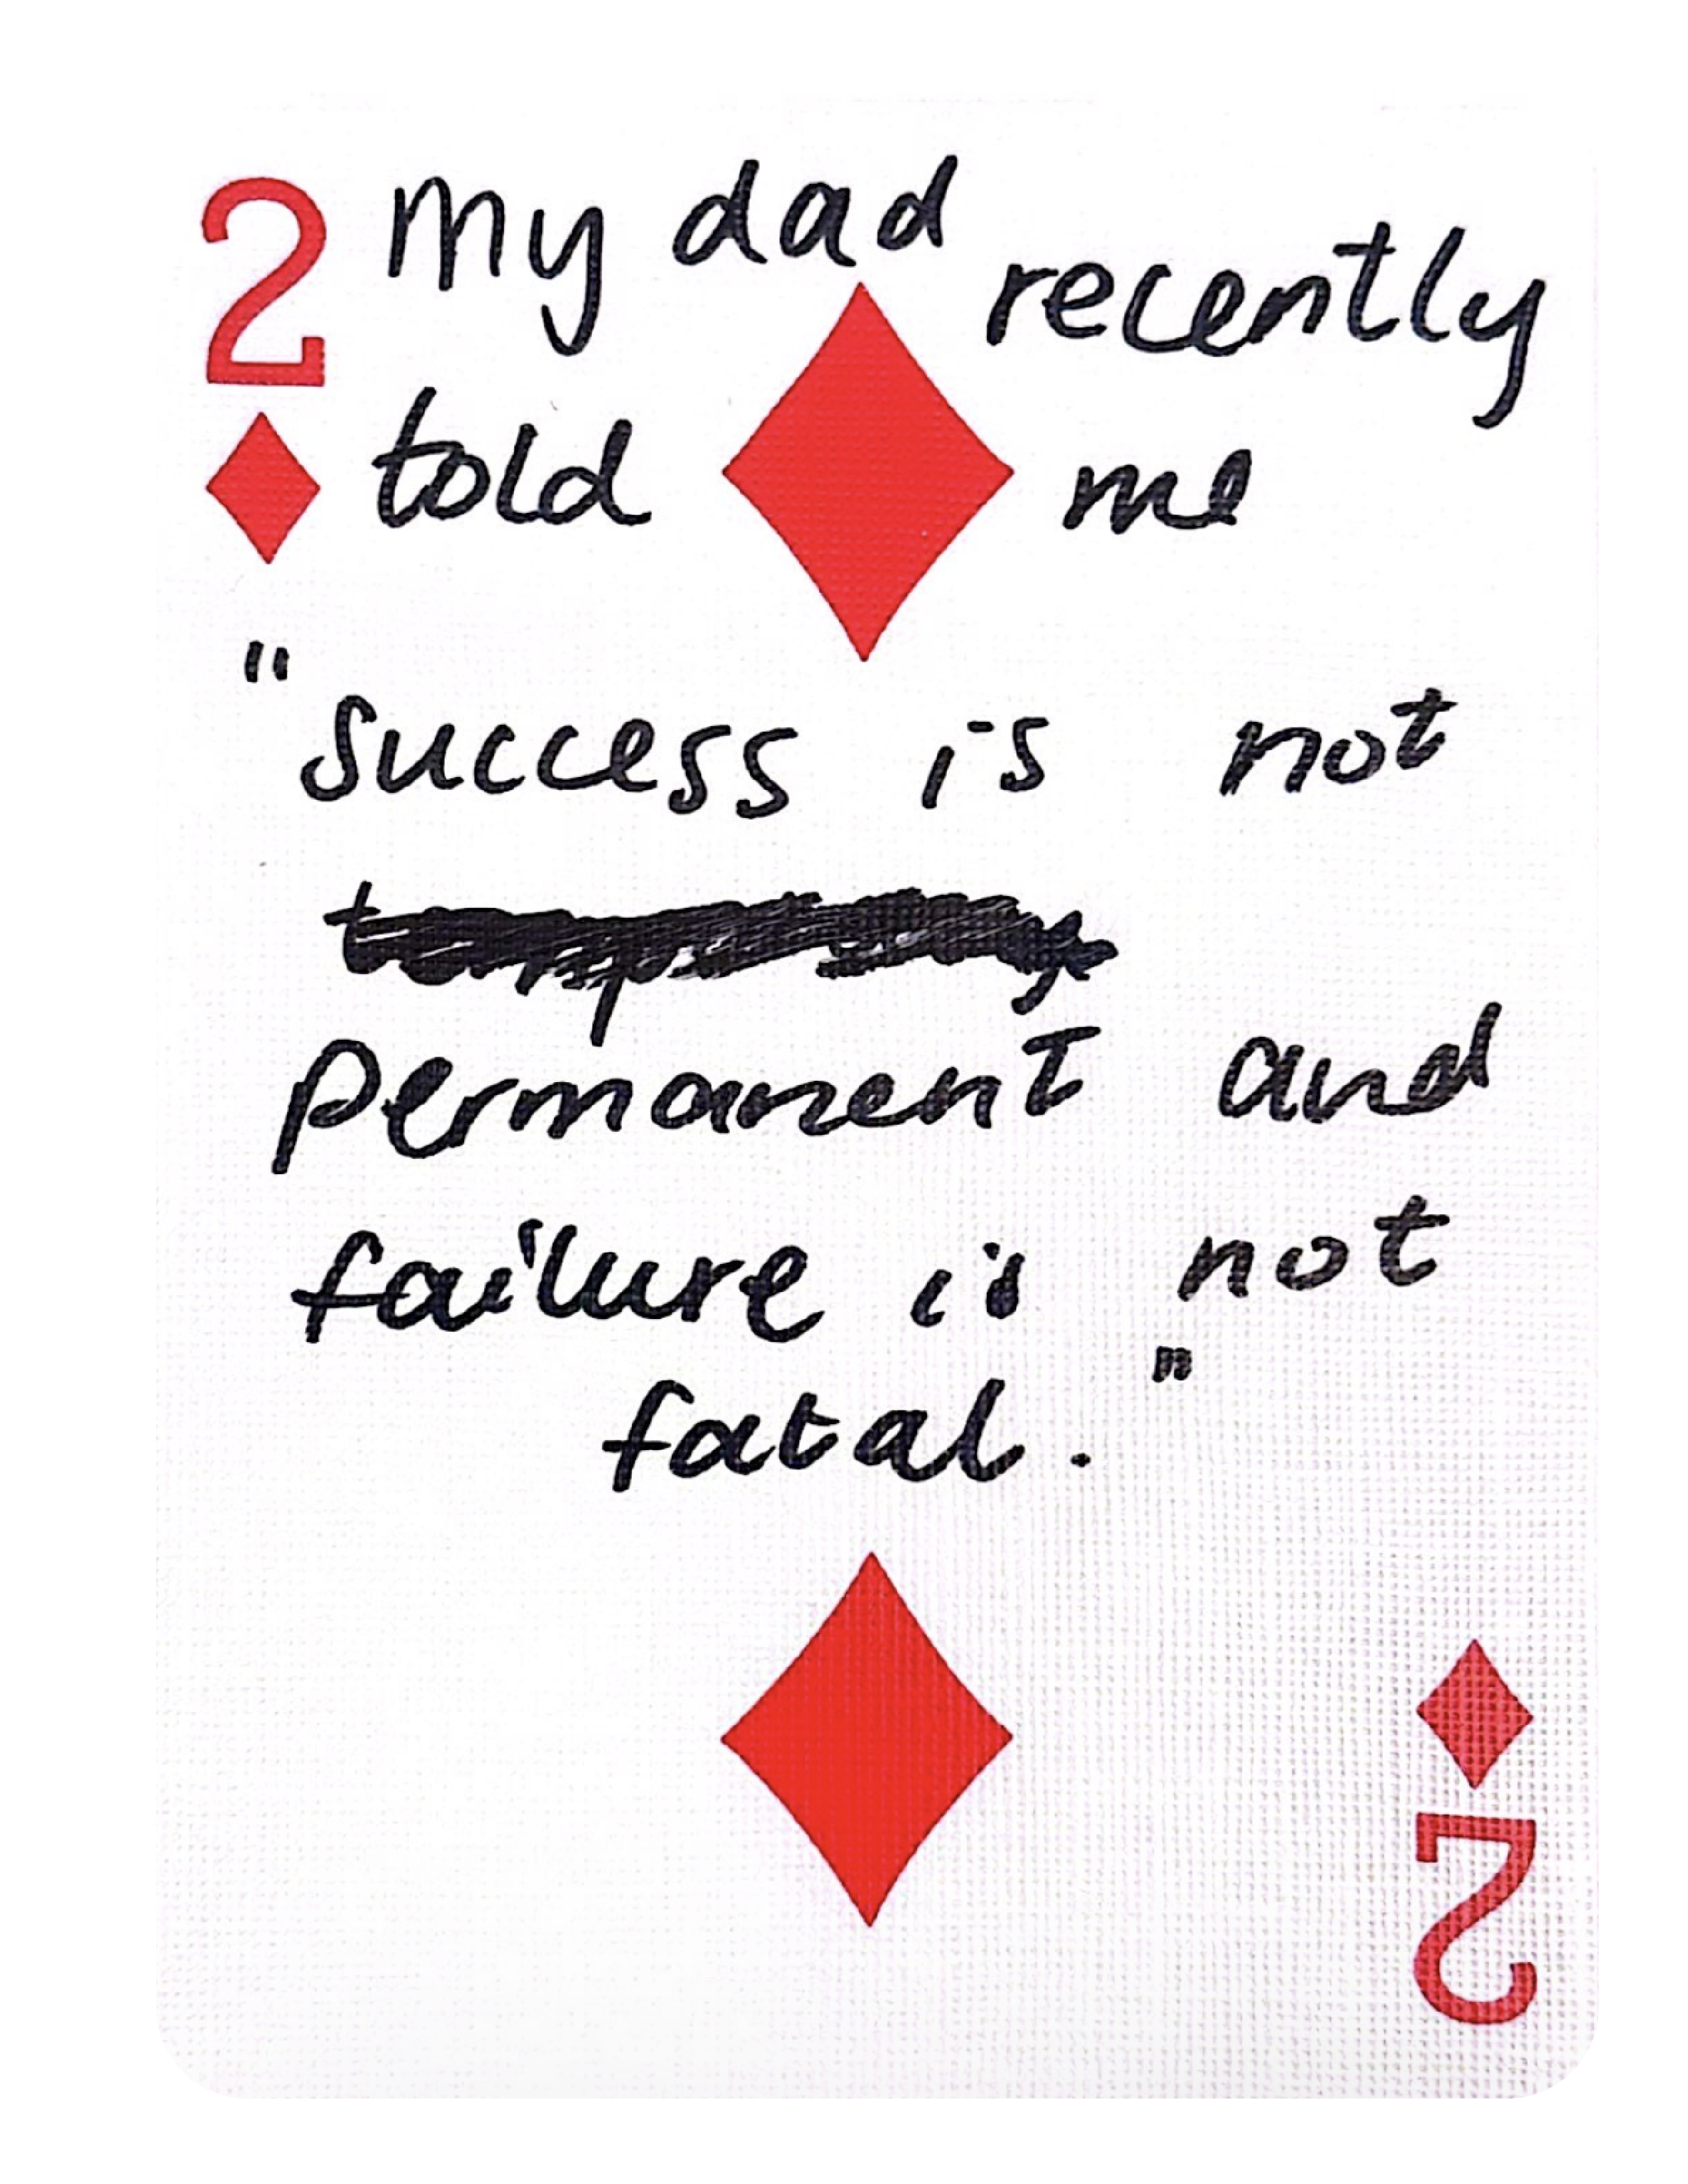 2 My dad recently
told me
"Success is not
permanent and
failure is not
fatal."
2